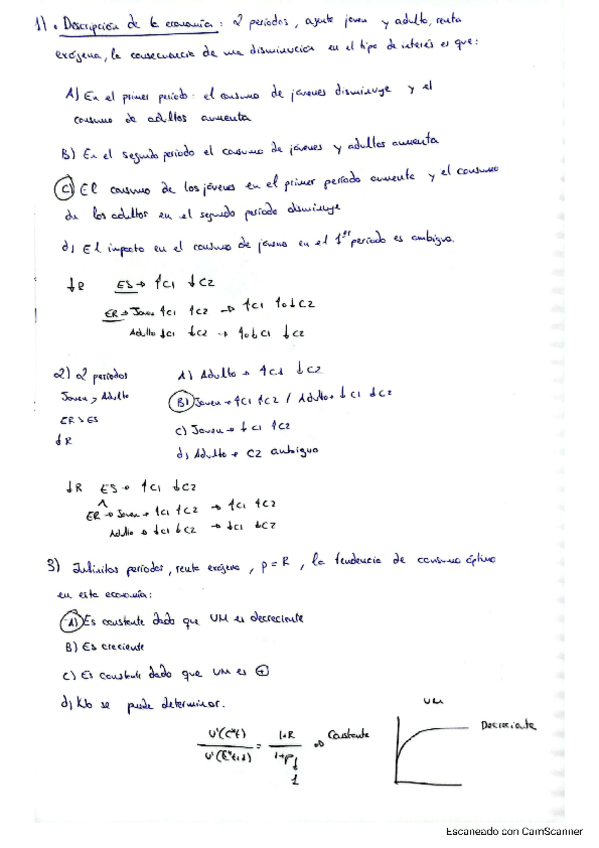 1) • Descripción de la economía: 2 períodos, agente joven y adulto, renta
exógena, la consecuencia de una disminución en el tipo de interés es que:
A) En el primer período el consumo de jóvenes disminuye y el
consumo de adultos aumenta
B) En el segundo período el consumo de jóvenes y adultos aumenta
C) El consumo de los jóvenes en el primer período aumenta y el consumo
de los adultos en el segundo período disminuye
d) El impacto en el consumo de jovenes en el 1er período es ambiguo.
↓R ES → ↑C1 ↓C2
ER → Joven ↑C1 ↑C2 → ↑C1 ↑o↓C2
Adulto ↓C1 ↓C2 → ↑o↓C1 ↓C2
2) 2 períodos
Joven y Adulto
ER > ES
↓R
A) Adulto → ↑C1 ↓C2
B) Joven → ↑C1 ↑C2 / Adulto → ↓C1 ↓C2
C) Joven → ↓C1 ↑C2
d) Adulto → C2 ambiguo
↓R ES → ↑C1 ↓C2
^
ER → Joven → ↑C1 ↑C2 → ↑C1 ↑C2
Adulto → ↓C1 ↓C2 → ↓C1 ↓C2
3) Infinitos períodos, renta exógena, ρ = R, la tendencia de consumo óptimo
en esta economía:
A) Es constante dado que UM es decreciente
B) Es creciente
C) Es constante dado que UM es ⊕
d) No se puede determinar.
U'(C*t) / U'(C*t+1) = 1+R / 1+ρ ⇒ Constante
↓
1
UM
Decreciente
Escaneado con CamScanner